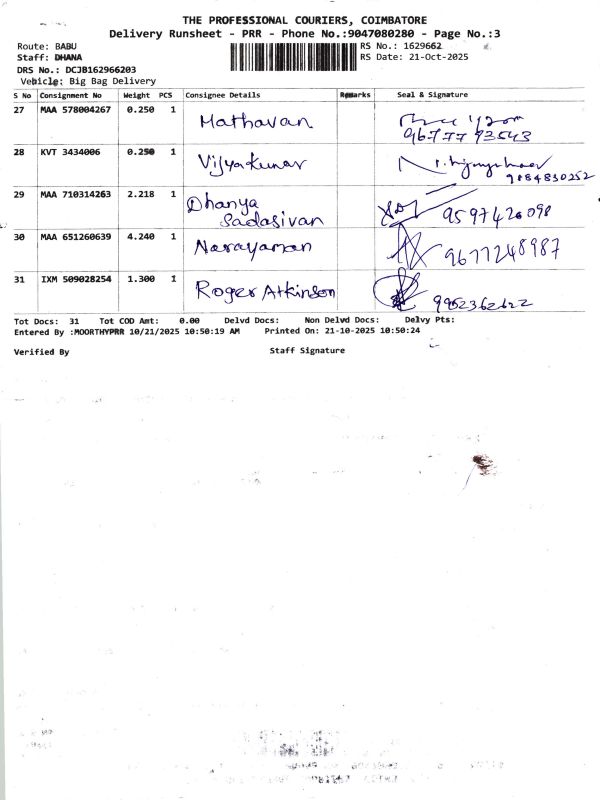 THE PROFESSIONAL COURIERS, COIMBATORE
Delivery Runsheet - PRR - Phone No.:9047080280 - Page No.:3
Route: BABU
Staff: DHANA
DRS No.: DCJB162966203
Vehicle: Big Bag Delivery
RS No.: 1629662
RS Date: 21-Oct-2025
S No Consignment No Weight PCS Consignee Details Remarks Seal & Signature
27 MAA 578004267 0.250 1 Mathavan
96777 93543
28 KVT 3434006 0.250 1 Vijyakumar
9884830252
29 MAA 710314263 2.218 1 Dhanya Sadasivan 9597426098
30 MAA 651260639 4.240 1 Narayanan 9677248987
31 IXM 509028254 1.300 1 Roger Atkinson 9952362622
Tot Docs: 31 Tot COD Amt: 0.00 Delvd Docs: Non Delvd Docs: Delvy Pts:
Entered By :MOORTHYPRR 10/21/2025 10:50:19 AM Printed On: 21-10-2025 10:50:24
Verified By Staff Signature